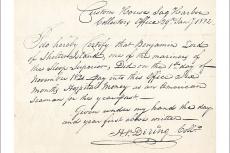 Custom House, Sag Harbor
Collector's Office 29th Jany 1832.
I do hereby certify that Benjamin Lord
of Shelter Island, one of the mariners of
the Sloop Superior, Did on the 1st day of
November 1831 Pay into this Office the
months Hospital Money as an American
Seaman for the year past.
Given under my hand the day
and year first above written
H. T. Dering Collr